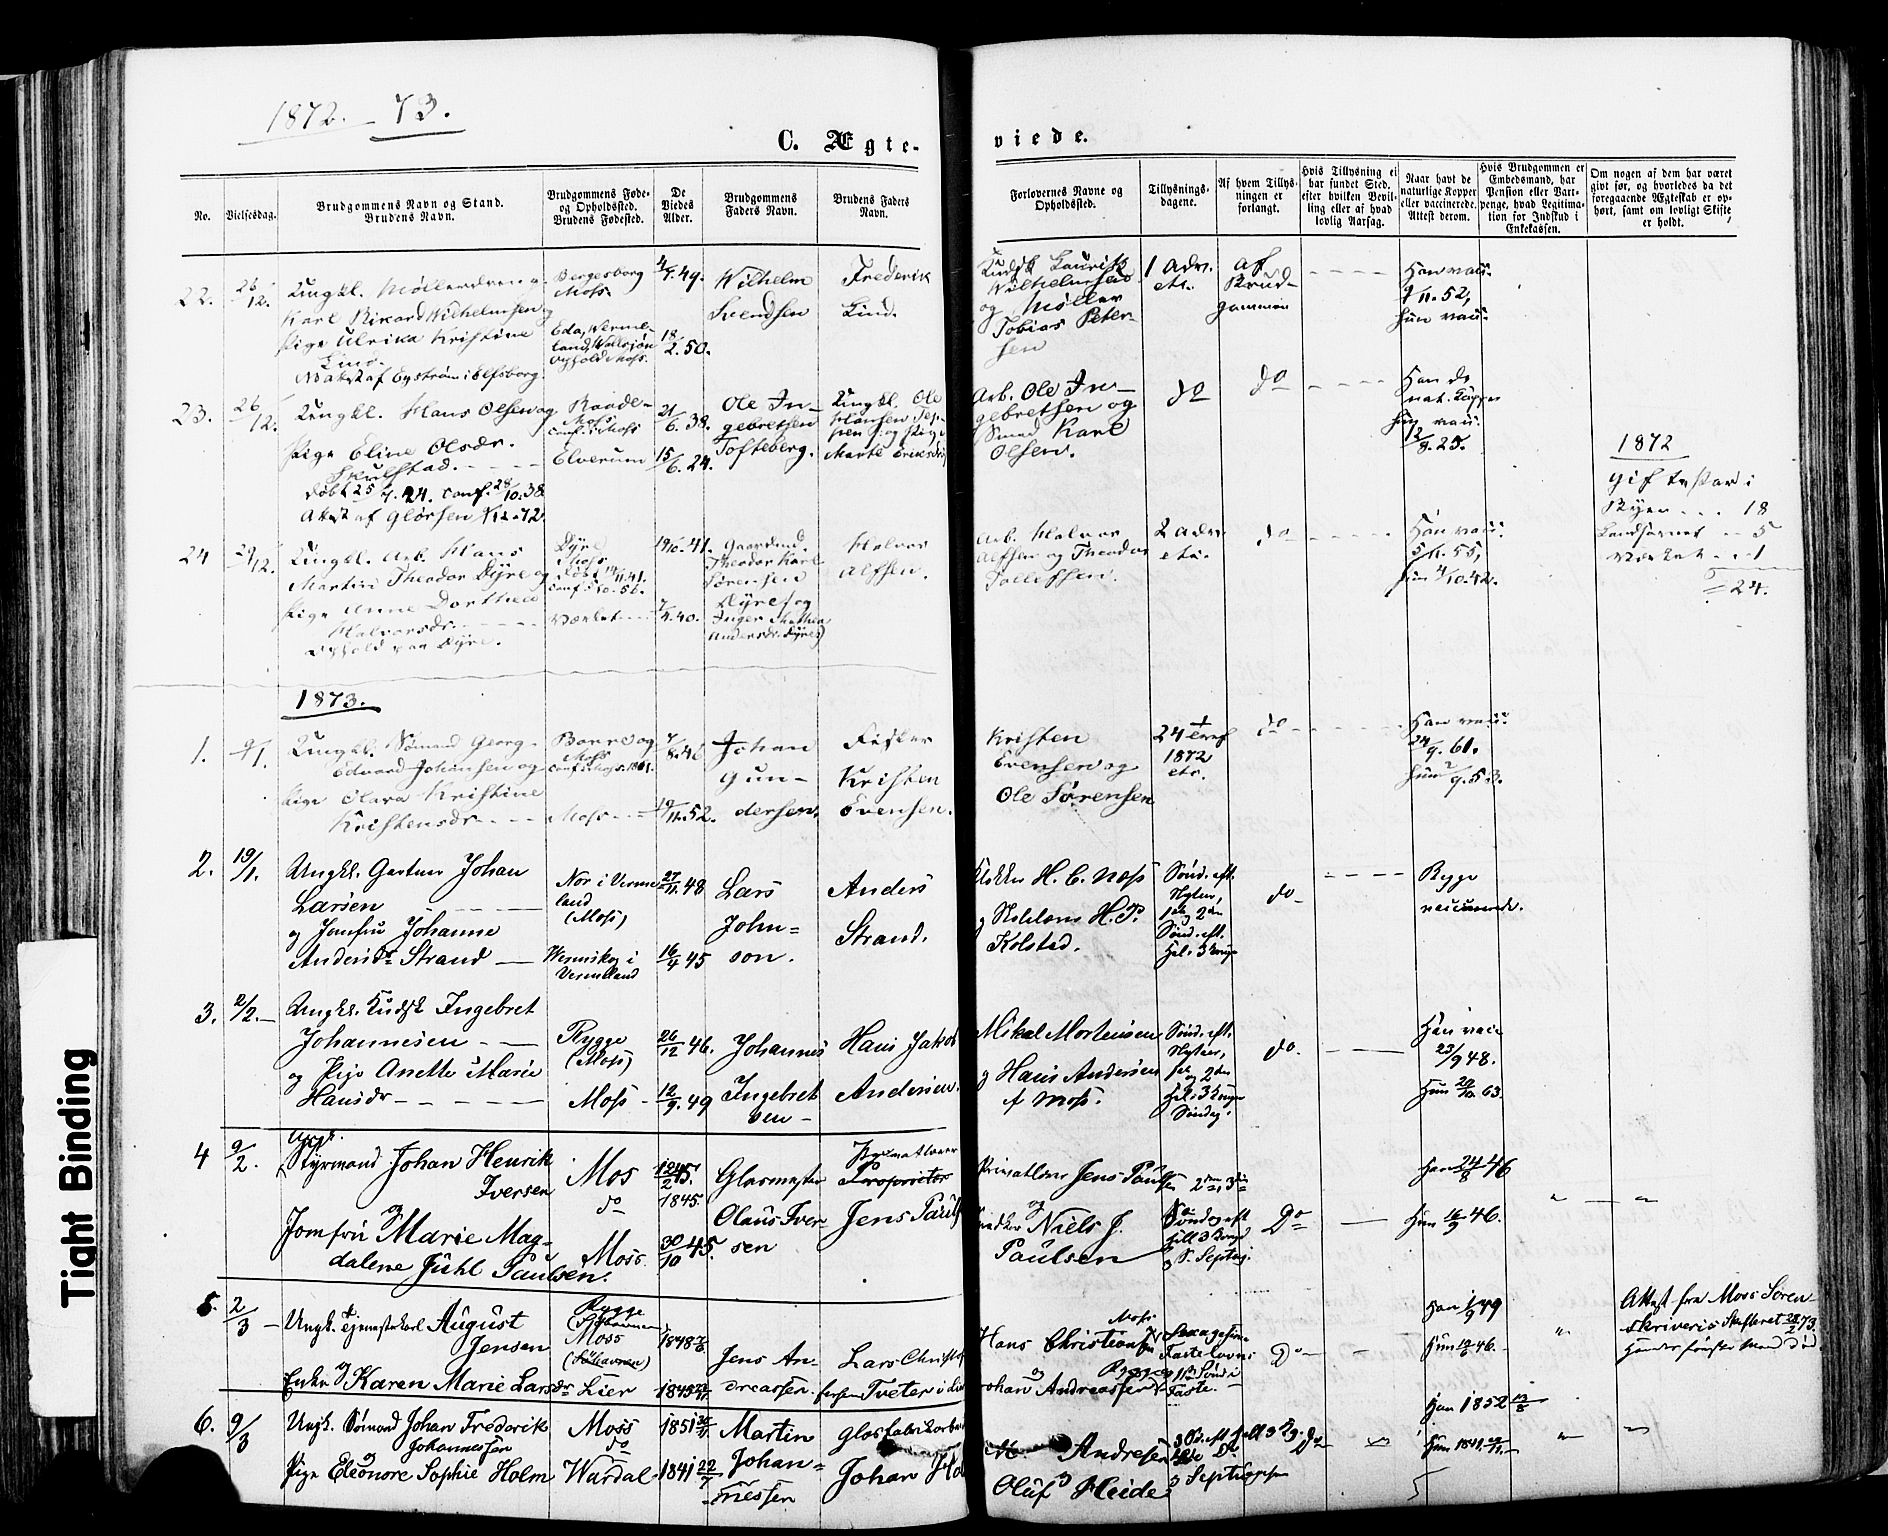 1872. - 73.
C. Ægteviede.
No.
Vielsesdag.
Brudgommens Navn og Stand.
Brudens Navn.
Brudgommens Føde-
og Opholdssted.
Brudens Fødested.
De
Viedes
Alder.
Brudgommens
Faders Navn.
Brudens Faders
Navn.
Forlovernes Navne og
Opholdssted.
Tillysnings-
dagene.
Af hvem Tillys-
ningen er
forlangt.
Hvis Tillysning ei
har fundet Sted,
efter hvilken Bevil-
ling eller af hvad
lovlig Aarsag.
Naar havt de
naturlige Kopper
eller vaccinerede.
Attest derom.
Hvis Brudgommen er
Embedsmand, har
Pension eller Var-
penge, hvad Legitima-
tion for Indskud i
Enkekassen.
Om nogen af dem har været
gift før, og hvorledes da det
foregaaende Ægteskab er op-
hørt, samt om lovligt Skifte
er holdt.
22. 26/12.
Ungkl. Møllerdreng
Karl Rikard Wilhelmsen og
Pige Ulrika Kristine
Lind.
Attest af Nystrøm i Elfsborg.
Bergersborg
Moss
Eda, Verme-
land,
Ophold Moss.
4/7.49.
18/2.50.
Wilhelm
Svendsen
Frederik
Lind.
Kudsk Laurits
Wilhelmsen
og Møller
Tobias Peter-
sen
1 Adv.
etc.
af
Brud-
gommen
Han vacc.
9/11.52,
Hun vacc.
23. 26/12.
Ungkl. Hans Olsen og
Pige Eline Olsdr.
Skulstad.
Døbt 25/7.24. conf. 28/10.38
Raade
Moss
conf. i Moss
Elverum
21/6.38.
15/6.24.
Ole In-
gebretsen
Tofteberg.
Ungkl. Ole
Hansen Tep-
pen og Pige
Marte Eriksdr.
Arb. Ole In-
gebretsen og
Smed Karl
Olsen.
do
do
Han do
nat. Kopper
Hun vacc.
12/8.25.
1872
Gifte Par i
Byen . . . 18
Landsognet . . 5
Værket . . 1
= 24.
24 29/12.
Ungkl. Arb. Hans
Martin Theodor Dyre og
Pige Anne Dorthea
Halvorsdr.
Ophold paa Dyre.
Dyre
Moss
Døbt 14/11.41.
conf. 5/10.56.
Værket
19/10.41.
7/4.40.
Gaardmd.
Theodor Karl
Sørensen
Dyre og
Inger Mathea
Andersdr. Dyre
Halvor
Alfsen.
Arb. Halvor
Alfsen og Theodor
Tollefsen.
2 Adv.
etc.
do
Han vacc.
5/11.55,
Hun 4/10.42.
1873.
1. 9/1.
Ungkl. Sømand Georg
Edvard Johansen og
Pige Clara Kristine
Kristensdr.
Borre og
Moss
conf. i Moss. 1861.
Moss
7/8.46
19/11.52.
Johan
Gun-
dersen.
Fisker
Kristen
Evensen.
Kristen
Evensen og
Ole Sørensen
24
1872
etc.
do
Han vacc.
24/9.61.
Hun 2/9.53.
2. 19/1.
Ungkl. Gartner Johan
Larsen
og Jomfru Johanne
Andersdr Strand
Nor i Verme
land
(Moss)
Vermskog i
Vermeland
27/11.48
16/4 45
Lars
John=
son.
Anders
Strand.
Klokker H. C. Næss
H. P.
Kolstad.
Sønd. eft.
Nytaar,
1ste 2den
Sønd. eft.
Hel. 3 Konger
do
Begge
vaccinerede.
3. 2/2.
Ungkl. Kudsk Ingebret
Johannesen
og Pige Anette Marie
Hansdr
Rygge
(Moss)
Moss
26/12 46.
12/9.49
Johannes
Ingebret
sen
Hans Jakob
Andersen.
Mikal Mortensen
og Hans Andersen
af Moss.
Sønd. eft.
Nytaar,
1ste og 2den
Hel. 3 Konger
Søndag.
do.
Han vacc
23/9 48.
Hun 20/10 63.
4 9/2.
Ungk.
Styrmand Johan Henrik
Iversen
og
Jomfru Marie Mag-
dalene Juhl Paulsen.
Mos
do
Moss.
12/2 45.
1845.
30/10 45.
Glasmester
Olaus Iver-
sen
Privatlærer
Proprietær
Jens Pauls
Privatlærer Jens Paulsen
og
Niels J.
Paulsen
2den, 3die
Sønd eft
hell 3 Kong
S. Septuag.
Do
Han 24/8 46
Hun 16/9 46.
5. 2/3
Ungk. tjenestekarl August
Jensen
og
Enke Karen Marie Larsdr
Rygge
Moss
Lier
1848
1845
Jens An-
dreassen
Lars Christof
fersen Tveter i Lier
Moss
Hans Christiansen
og
Rygge
Johan Andreassen
Sexagesima
Fastelavns
1ste Sønd i
Faste.
Do
Han 1/9 49
Hun 12/6 46.
Attest fra Moss Soren
skriveri Skifteret 28/2 73.
Hendes første Mand død.
6. 9/3
Ungk. Sømand Johan Frederik
Johannessen
og
Pige Eleonore Sophie Holm
Moss
do
Wardal
1851
1841 22/7
Martin
Johan=
nessen
Glasfabrikarbei
Johan Hol
M. Andresen
og
Oluf Heide
S. Septuagesima
Do
Han 1852 13/8
Hun 1841
Tight Binding